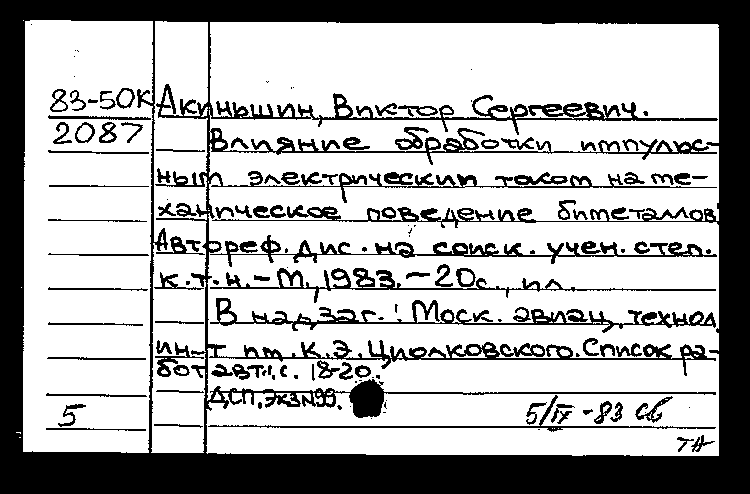 83-50К Акиньшин, Виктор Сергеевич.
2087 Влияние обработки импульс-
ным электрическим током на ме-
ханическое поведение биметаллов.
Автореф. дис. на соиск. учен. степ.
к.т.н. - М., 1983. - 20с., ил.
В надзаг.: Моск. авиац. технол.
ин-т им. К.Э. Циолковского. Список ра-
бот авт.: с. 18-20.
ДСП. Экз N99.
5 5/IX-83 св
ТА